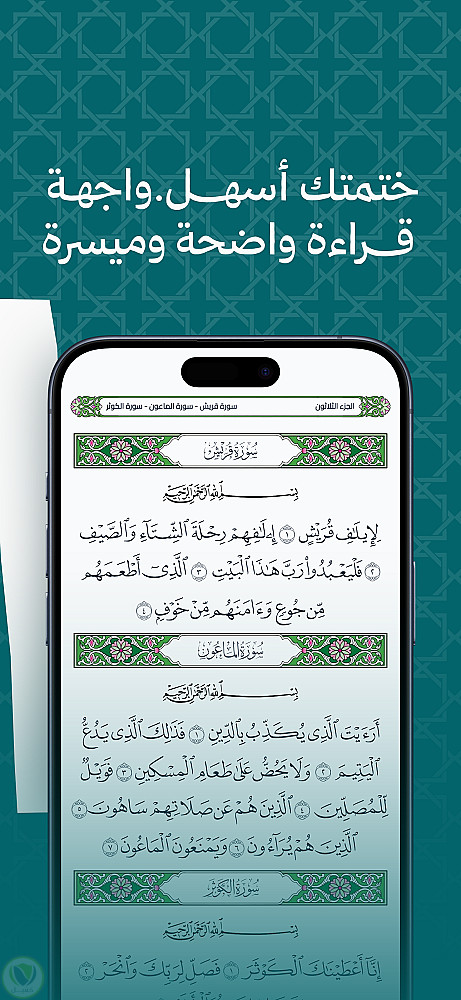 ختمتك أسهل.واجهة
قراءة واضحة وميسرة
الجزء الثلاثون
سورة قريش - سورة الماعون - سورة الكوثر
سُورَةُ قُرَيْشٍ
بِسْمِ اللَّهِ الرَّحْمَٰنِ الرَّحِيمِ
لِإِيلَٰفِ قُرَيْشٍ ١ إِۦلَٰفِهِمْ رِحْلَةَ ٱلشِّتَآءِ وَٱلصَّيْفِ
٢ فَلْيَعْبُدُوا۟ رَبَّ هَٰذَا ٱلْبَيْتِ ٣ ٱلَّذِىٓ أَطْعَمَهُم
مِّن جُوعٍ وَءَامَنَهُم مِّنْ خَوْفٍۭ ٤
سُورَةُ المَاعُونِ
بِسْمِ اللَّهِ الرَّحْمَٰنِ الرَّحِيمِ
أَرَءَيْتَ ٱلَّذِى يُكَذِّبُ بِٱلدِّينِ ١ فَذَٰلِكَ ٱلَّذِى يَدُعُّ
ٱلْيَتِيمَ ٢ وَلَا يَحُضُّ عَلَىٰ طَعَامِ ٱلْمِسْكِينِ ٣ فَوَيْلٌ
لِّلْمُصَلِّينَ ٤ ٱلَّذِينَ هُمْ عَن صَلَاتِهِمْ سَاهُونَ ٥
ٱلَّذِينَ هُمْ يُرَآءُونَ ٦ وَيَمْنَعُونَ ٱلْمَاعُونَ ٧
سُورَةُ الكَوْثَرِ
بِسْمِ اللَّهِ الرَّحْمَٰنِ الرَّحِيمِ
إِنَّآ أَعْطَيْنَٰكَ ٱلْكَوْثَرَ ١ فَصَلِّ لِرَبِّكَ وَٱنْحَرْ ٢